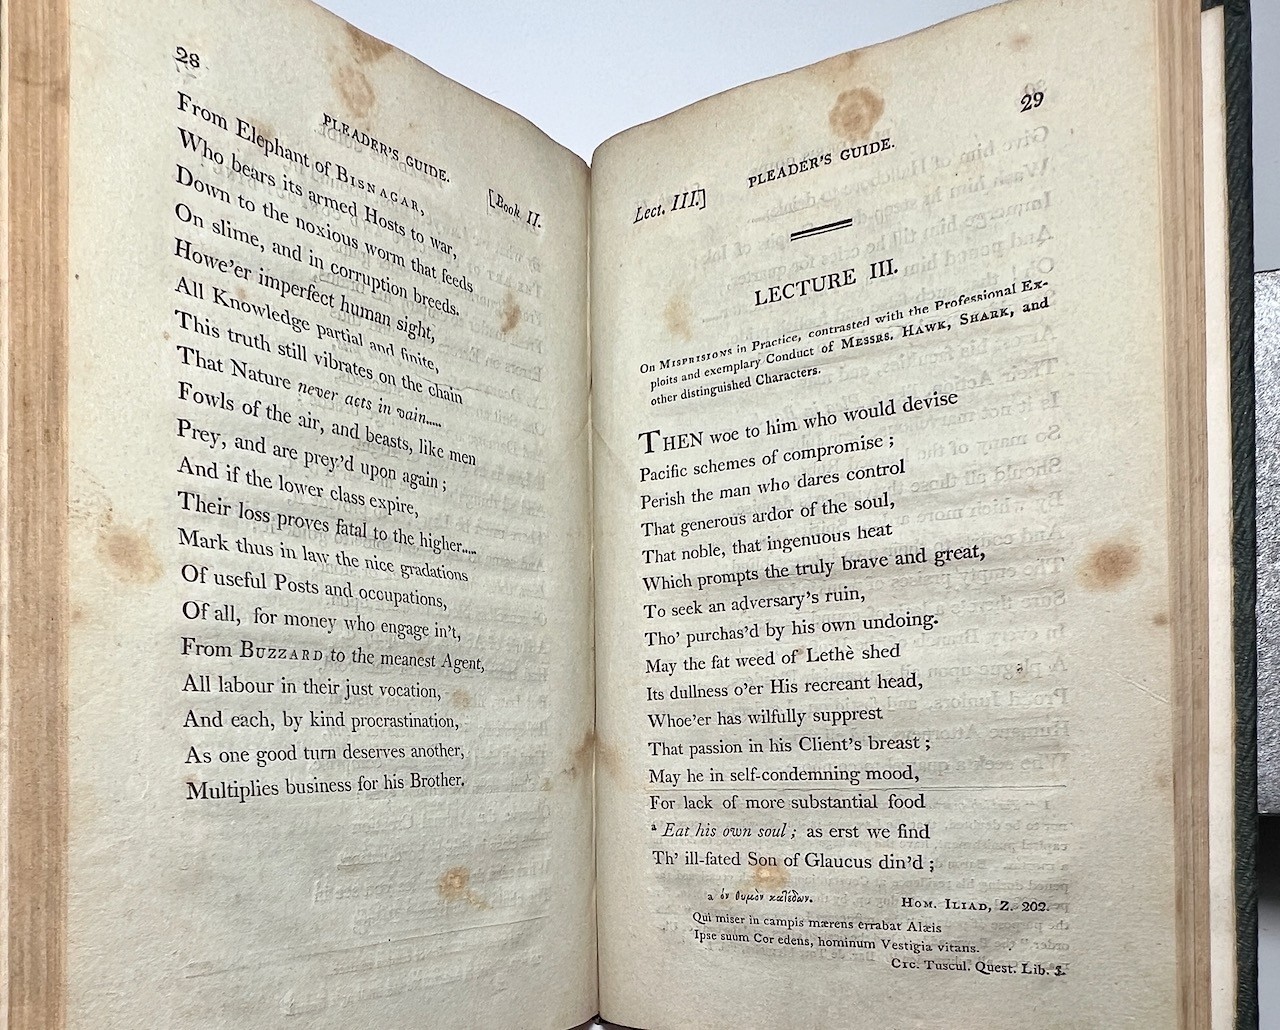 28
PLEADER'S GUIDE.
[Book II.
From Elephant of BISNAGAR,
Who bears its armed Hosts to war,
Down to the noxious worm that feeds
On slime, and in corruption breeds.
Howe'er imperfect human sight,
All Knowledge partial and finite,
This truth still vibrates on the chain
That Nature never acts in vain.....
Fowls of the air, and beasts, like men
Prey, and are prey'd upon again ;
And if the lower class expire,
Their loss proves fatal to the higher.....
Mark thus in law the nice gradations
Of useful Posts and occupations,
Of all, for money who engage in't,
From BUZZARD to the meanest Agent,
All labour in their just vocation,
And each, by kind procrastination,
As one good turn deserves another,
Multiplies business for his Brother.
29
PLEADER'S GUIDE.
Lect. III.]
LECTURE III.
On MISPRISIONS in Practice, contrasted with the Professional Ex-
ploits and exemplary Conduct of MESSRS. HAWK, SHARK, and
other distinguished Characters.
THEN woe to him who would devise
Pacific schemes of compromise ;
Perish the man who dares control
That generous ardor of the soul,
That noble, that ingenuous heat
Which prompts the truly brave and great,
To seek an adversary's ruin,
Tho' purchas'd by his own undoing.
May the fat weed of Lethè shed
Its dullness o'er His recreant head,
Whoe'er has wilfully supprest
That passion in his Client's breast ;
May he in self-condemning mood,
For lack of more substantial food
a Eat his own soul ; as erst we find
Th' ill-fated Son of Glaucus din'd ;
a ὁν θυμὸν κατέδων. HOM. ILIAD, Z. 202.
Qui miser in campis mærens errabat Alæis
Ipse suum Cor edens, hominum Vestigia vitans.
CIC. Tuscul. Quest. Lib.